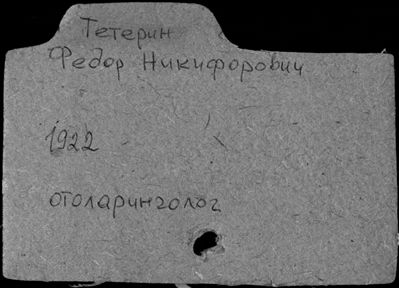 Тетерин
Федор Никифорович
1922
отоларинголог